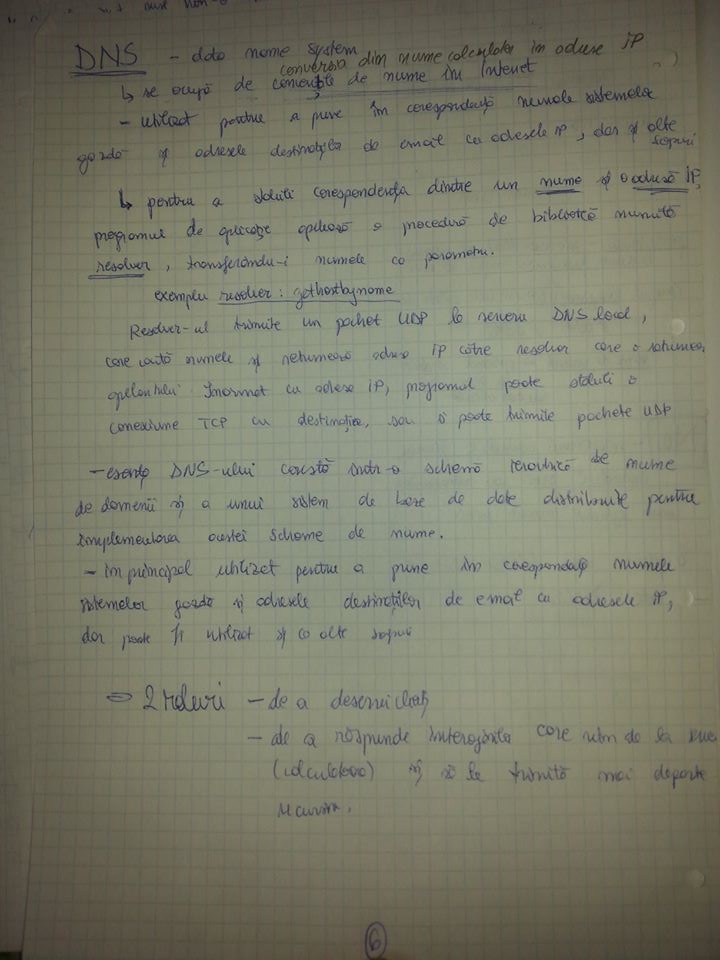 DNS - data name system
conversia din nume calculator in adrese IP
↳ se ocupă de de nume în Intenet
- utilizat pentru a pune în corespondență numele sistemelor
gazdă și adresele destinațiilor de email cu adresele IP, dar și alte
scopuri
↳ pentru a stabili corespondența dintre un nume și o adresă IP,
programul de aplicație apelează o procedură de bibliotecă numită
resolver, transferându-i numele ca parametru.
exemplu resolver: gethostbyname
Resolver-ul trimite un pachet UDP la serverul DNS local,
care caută numele și returnează adresa IP către resolver care o returnează
apelantului Înarmat cu adresa IP, programul poate stabili o
conexiune TCP cu destinația, sau îi poate trimite pachete UDP
- esența DNS-ului constă într-o schemă ierarhică de nume
de domenii și a unui sistem de baze de date distribuite pentru
implementarea acestei scheme de nume.
- în principal utilizat pentru a pune în corespondență numele
sistemelor gazdă și adresele destinațiilor de email cu adresele IP,
dar poate fi utilizat și ca alte scopuri
2 roluri - de a deservi clienți
- de a răspunde interogărilor care vin de la
și să le trimită mai departe